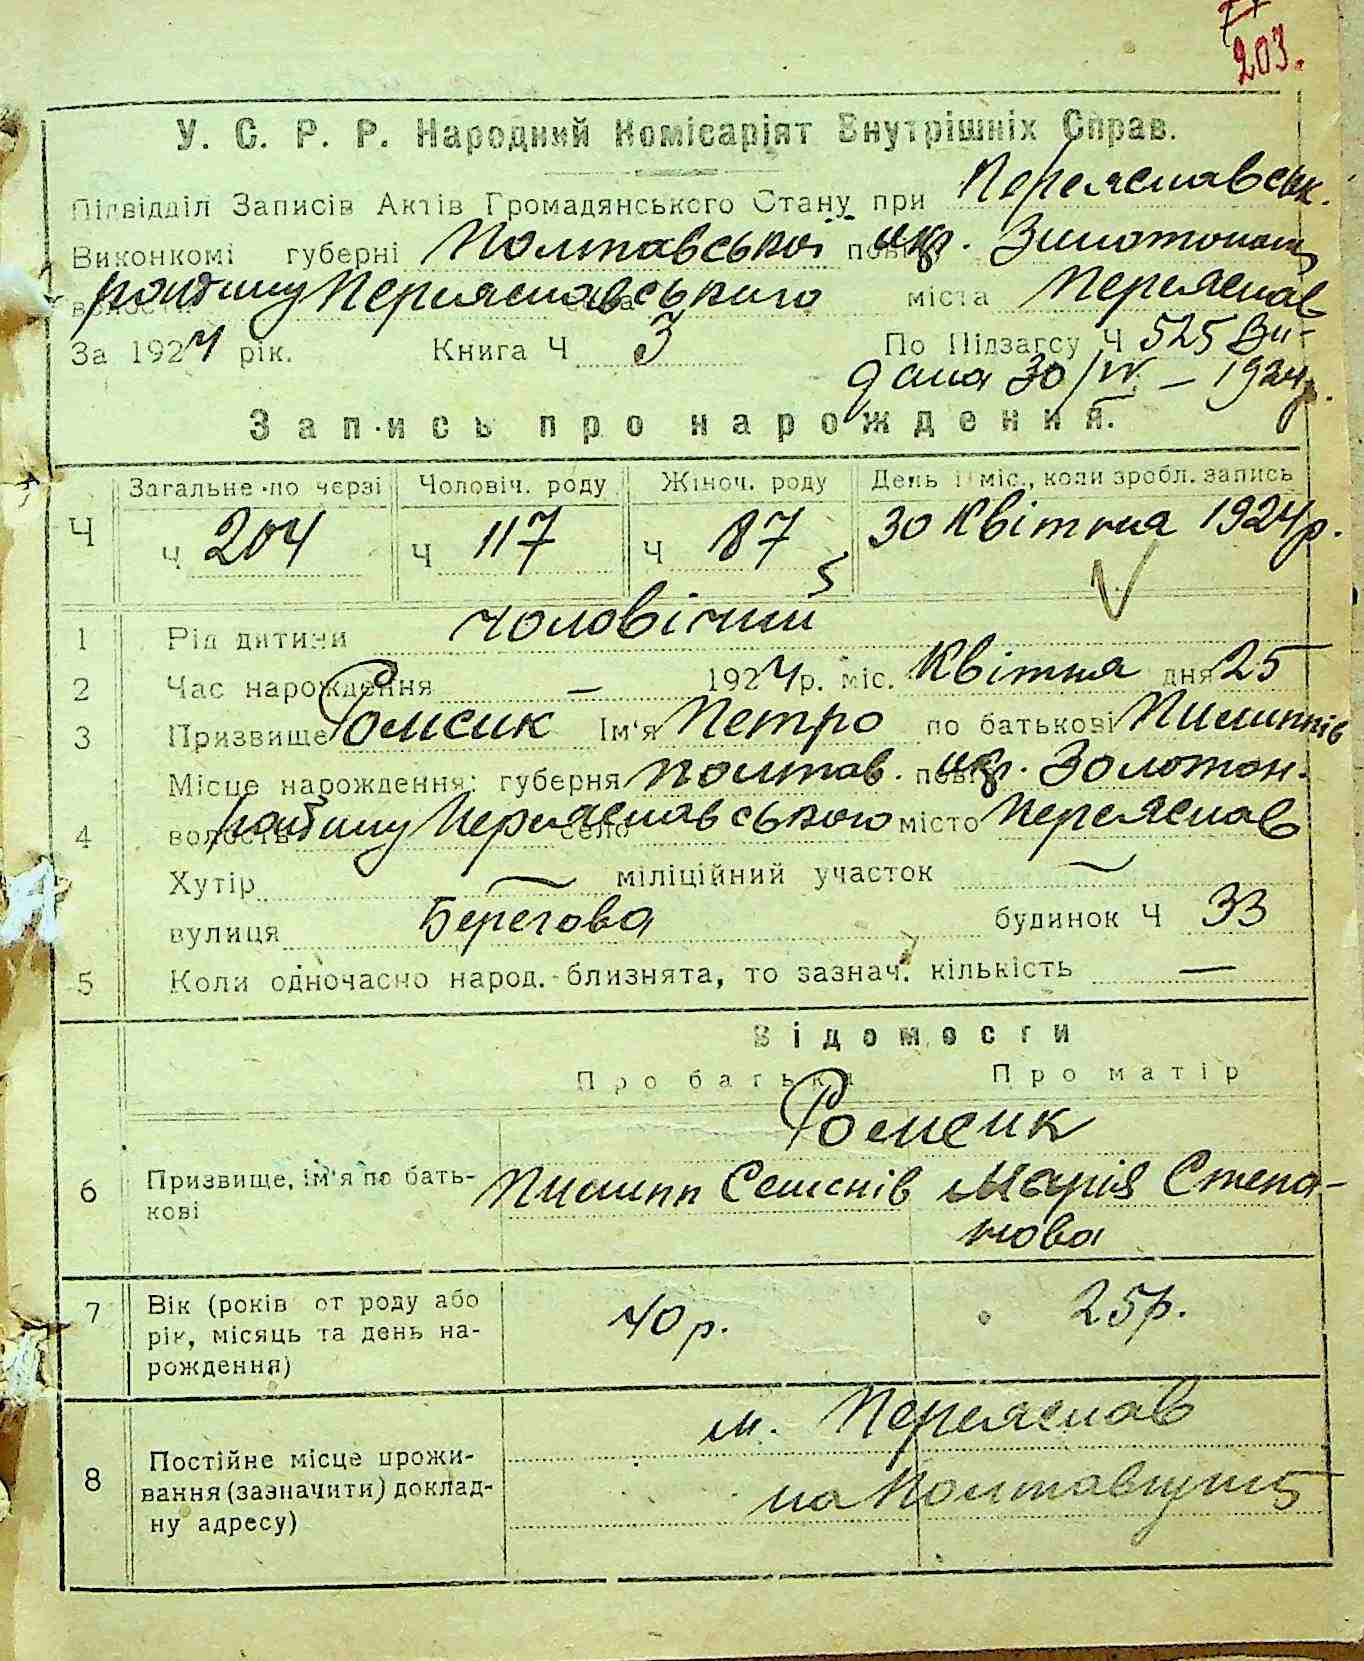 203.
У. С. Р. Р. Народний Комісаріят Внутрішніх Справ.
Підвідділ Записів Актів Громадянського Стану при Переяславськ.
Виконкомі губерні Полтавської окр. Золотонош
району Переяславського міста Переяслав
За 1924 рік. Книга Ч 3 По Підзагсу Ч 525 Ви-
дана 30/IV – 1924 р.
Запись про народження.
Загальне по черзі Чоловіч. роду Жіноч. роду День і міс., коли зробл. запись
Ч Ч 204 Ч 117 Ч 87 30 Квітня 1924 р.
1 Рід дитини чоловічий
2 Час народження – 1924 р. міс. Квітня дня 25
3 Призвище Ромсик Ім'я Петро по батькові Пилипів
Місце народження: губерня Полтав. окр. Золотон.
4 волость району Переяславського село місто Переяслав
Хутір – міліційний участок –
вулиця Берегова будинок Ч 33
5 Коли одночасно народ. близнята, то зазнач. кількість –
Відомости
Про батька Про матір
Ромсик
6 Призвище, ім'я по бать- Пилип Семенів Марія Степа-
кові нова
7 Вік (років от роду або 40 р. 25 р.
рік, місяць та день на-
рождення)
м. Переяслав
8 Постійне місце прожи-
вання (зазначити) доклад- на Полтавщині
ну адресу)